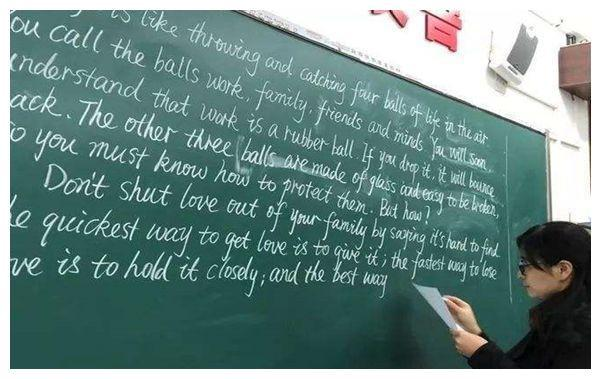 is like throwing and catching four balls of life in the air
ou call the balls work, family, friends and minds. You will soon
nderstand that work is a rubber ball. If you drop it, it will bounce
ack. The other three balls are made of glass and easy to be broken,
o you must know how to protect them. But how?
Don't shut love out of your family by saying it's hard to find
e quickest way to get love is to give it; the fastest way to lose
ve is to hold it closely; and the best way